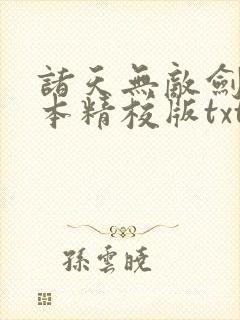 諸天無敵劍
本精校版txt
孫雲曉